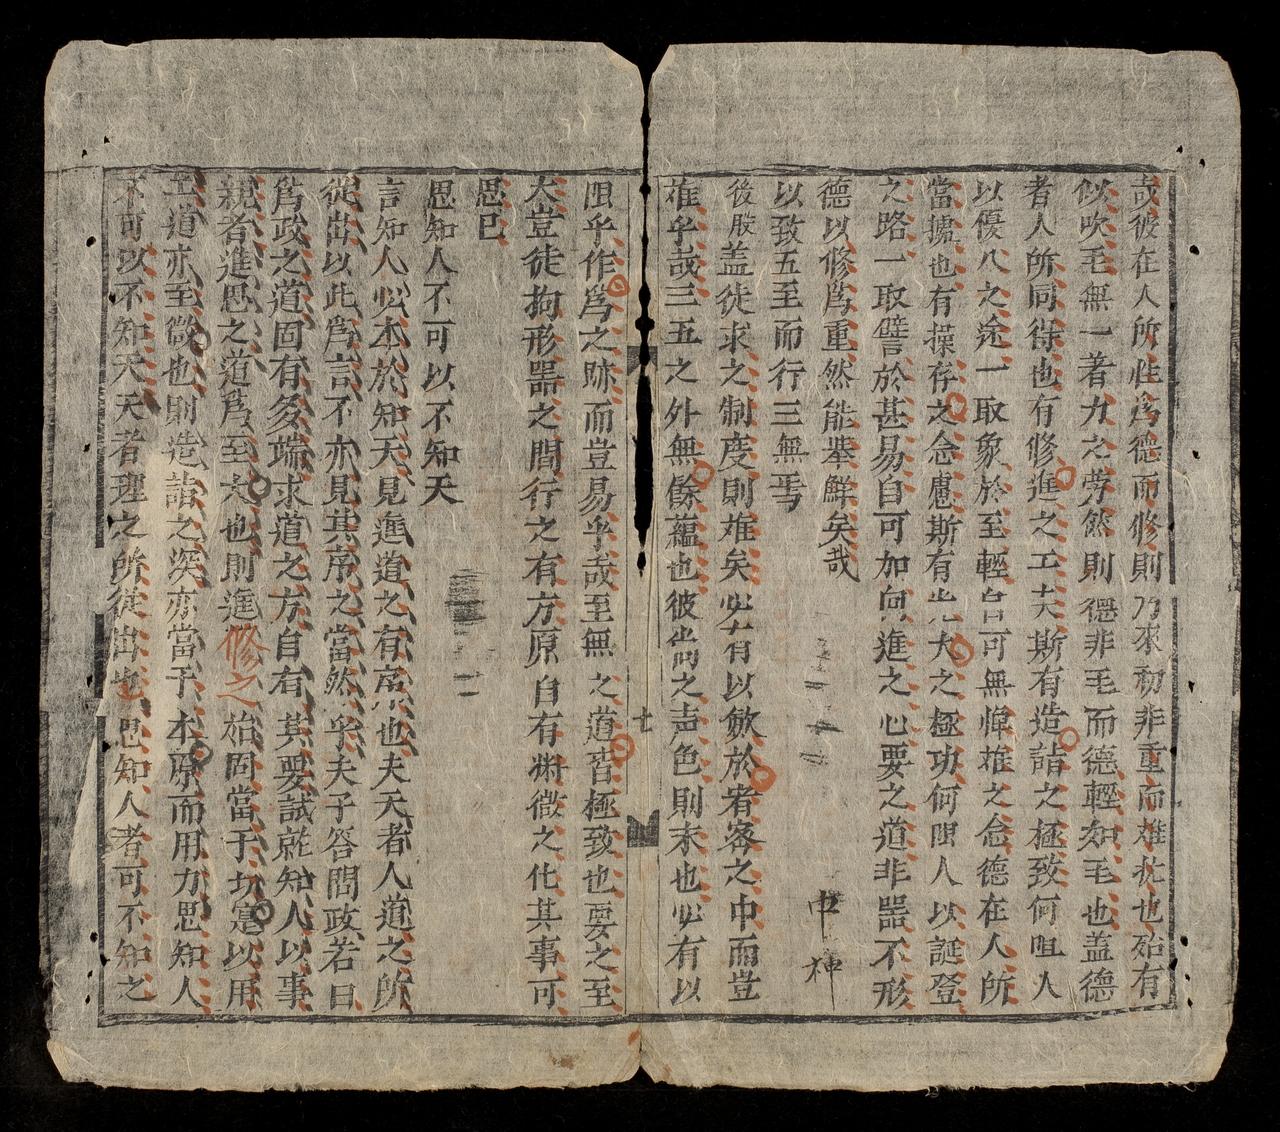 哉彼在人所性爲德而修則乃來初非重而难扵也殆有
似吹毛無一著力之劳然則德非毛而德輕如毛也盖德
者人所同得也有修進之工夫斯有造詣之極致何咀人
以優八之途一取象於至輕自可無惮难之念德在人所
當據也有操存之念慮斯有光大之極功何咀人以誕登
之路一取譬於甚易自可加向進之心要之道非器不形
德以修爲重然能举鮮矣哉
以致五至而行三無焉
後股盖徒求之制度則难矣必有以斂於者宻之中而豈
难乎哉三五之外無餘蘊也彼尚之声色則末也必有以
十
咀乎作爲之跡而豈易乎哉至無之道皆極致也要之至
大豈徒拘形器之間行之有方原自有将微之化其事可
思已
思知人不可以不知天
言知人必本於知天見進道之有序也夫天者人道之所
從出以此爲言不亦見其序之當然乎夫子答問政若曰
爲政之道固有多端求道之方自有其要試就知人以事
親者進思之道爲至大也則進修之始固當于切寔以用
工道亦至微也則造詣之深亦當于本原而用力思知人
不可以不知天天者理之所從出也思知人者可不知之